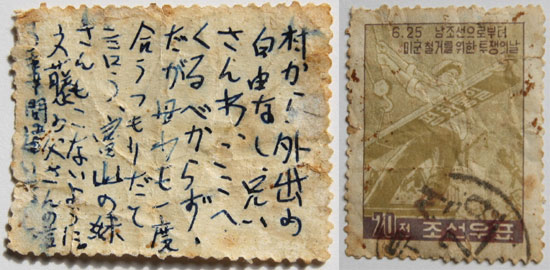 村から外出の
自由なし兄い
さんわ、ここへ
くるべからず、
だが 母わも一度
合うつもりだて
言う、富山の妹
さんもこないように
藤の父さんの
6.25 남조선으로부터
미군 철거를 위한 투쟁의 날
전 조선우표